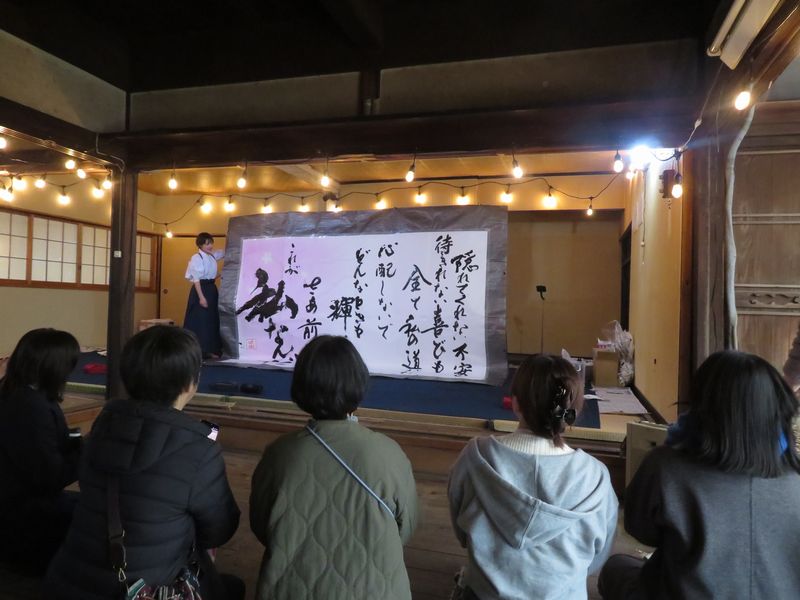 隠れてくれない不安
待ちきれない喜びも
全て私の道
心配しないで
どんな
輝
さあ前
これが
私なんだ